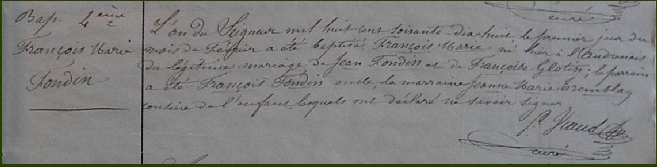 Bap. 4ème
François Marie
Tondin
L'an du Seigneur mil huit cent soixante-dix-huit, le premier jour du
mois de Février a été baptisé François Marie né hier à l'Audrenais
du légitime mariage de Jean Tondin et de Françoise Glotin; le parrain
a été François Tondin oncle, la marraine Jeanne Marie Tremblay
cousine de l'enfant, lesquels ont déclaré ne savoir signer
curé